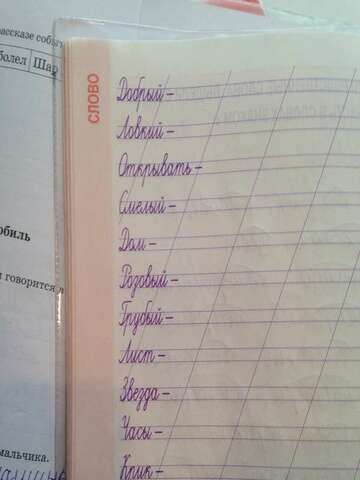 рассказе событ
болел Шар
СЛОВО
Добрый –
Ловкий –
Открывать –
Смелый –
Дом –
Розовый –
Грубый –
Лист –
Звезда –
Часы –
Крик –
говорится
мальчика.